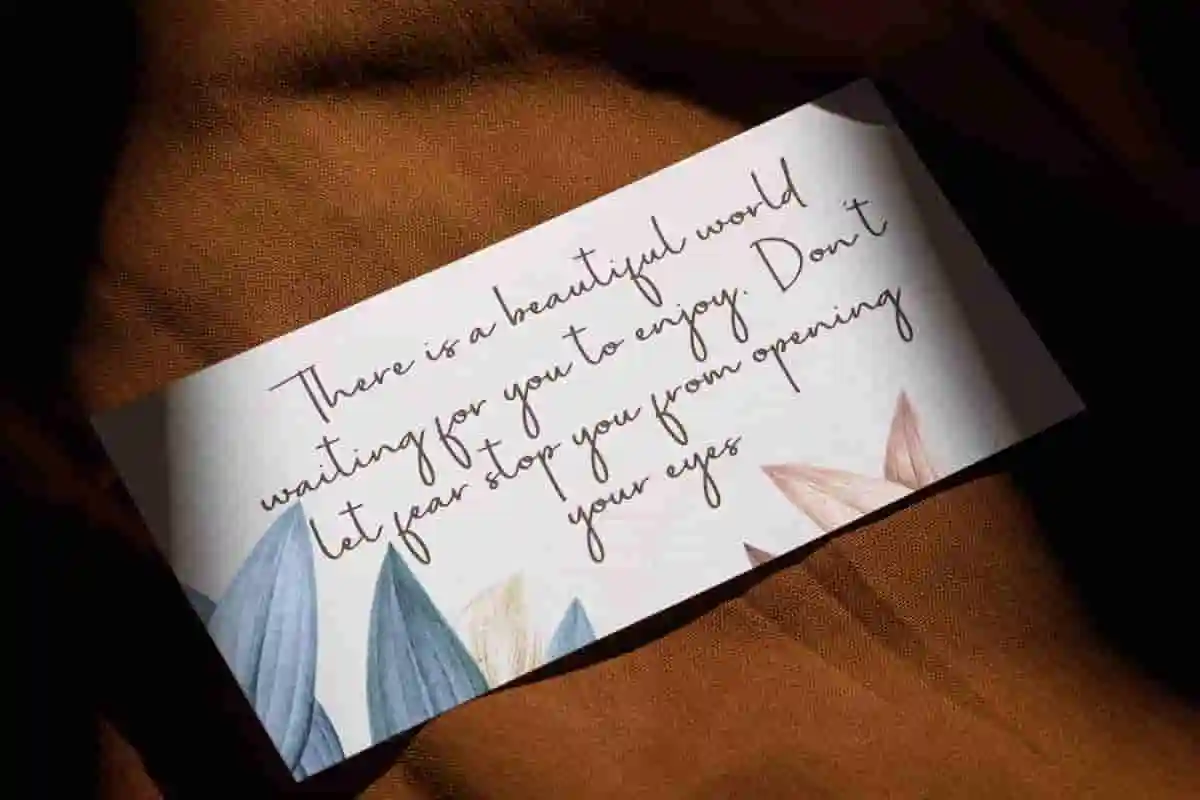 There is a beautiful world
waiting for you to enjoy. Don't
let fear stop you from opening
your eyes